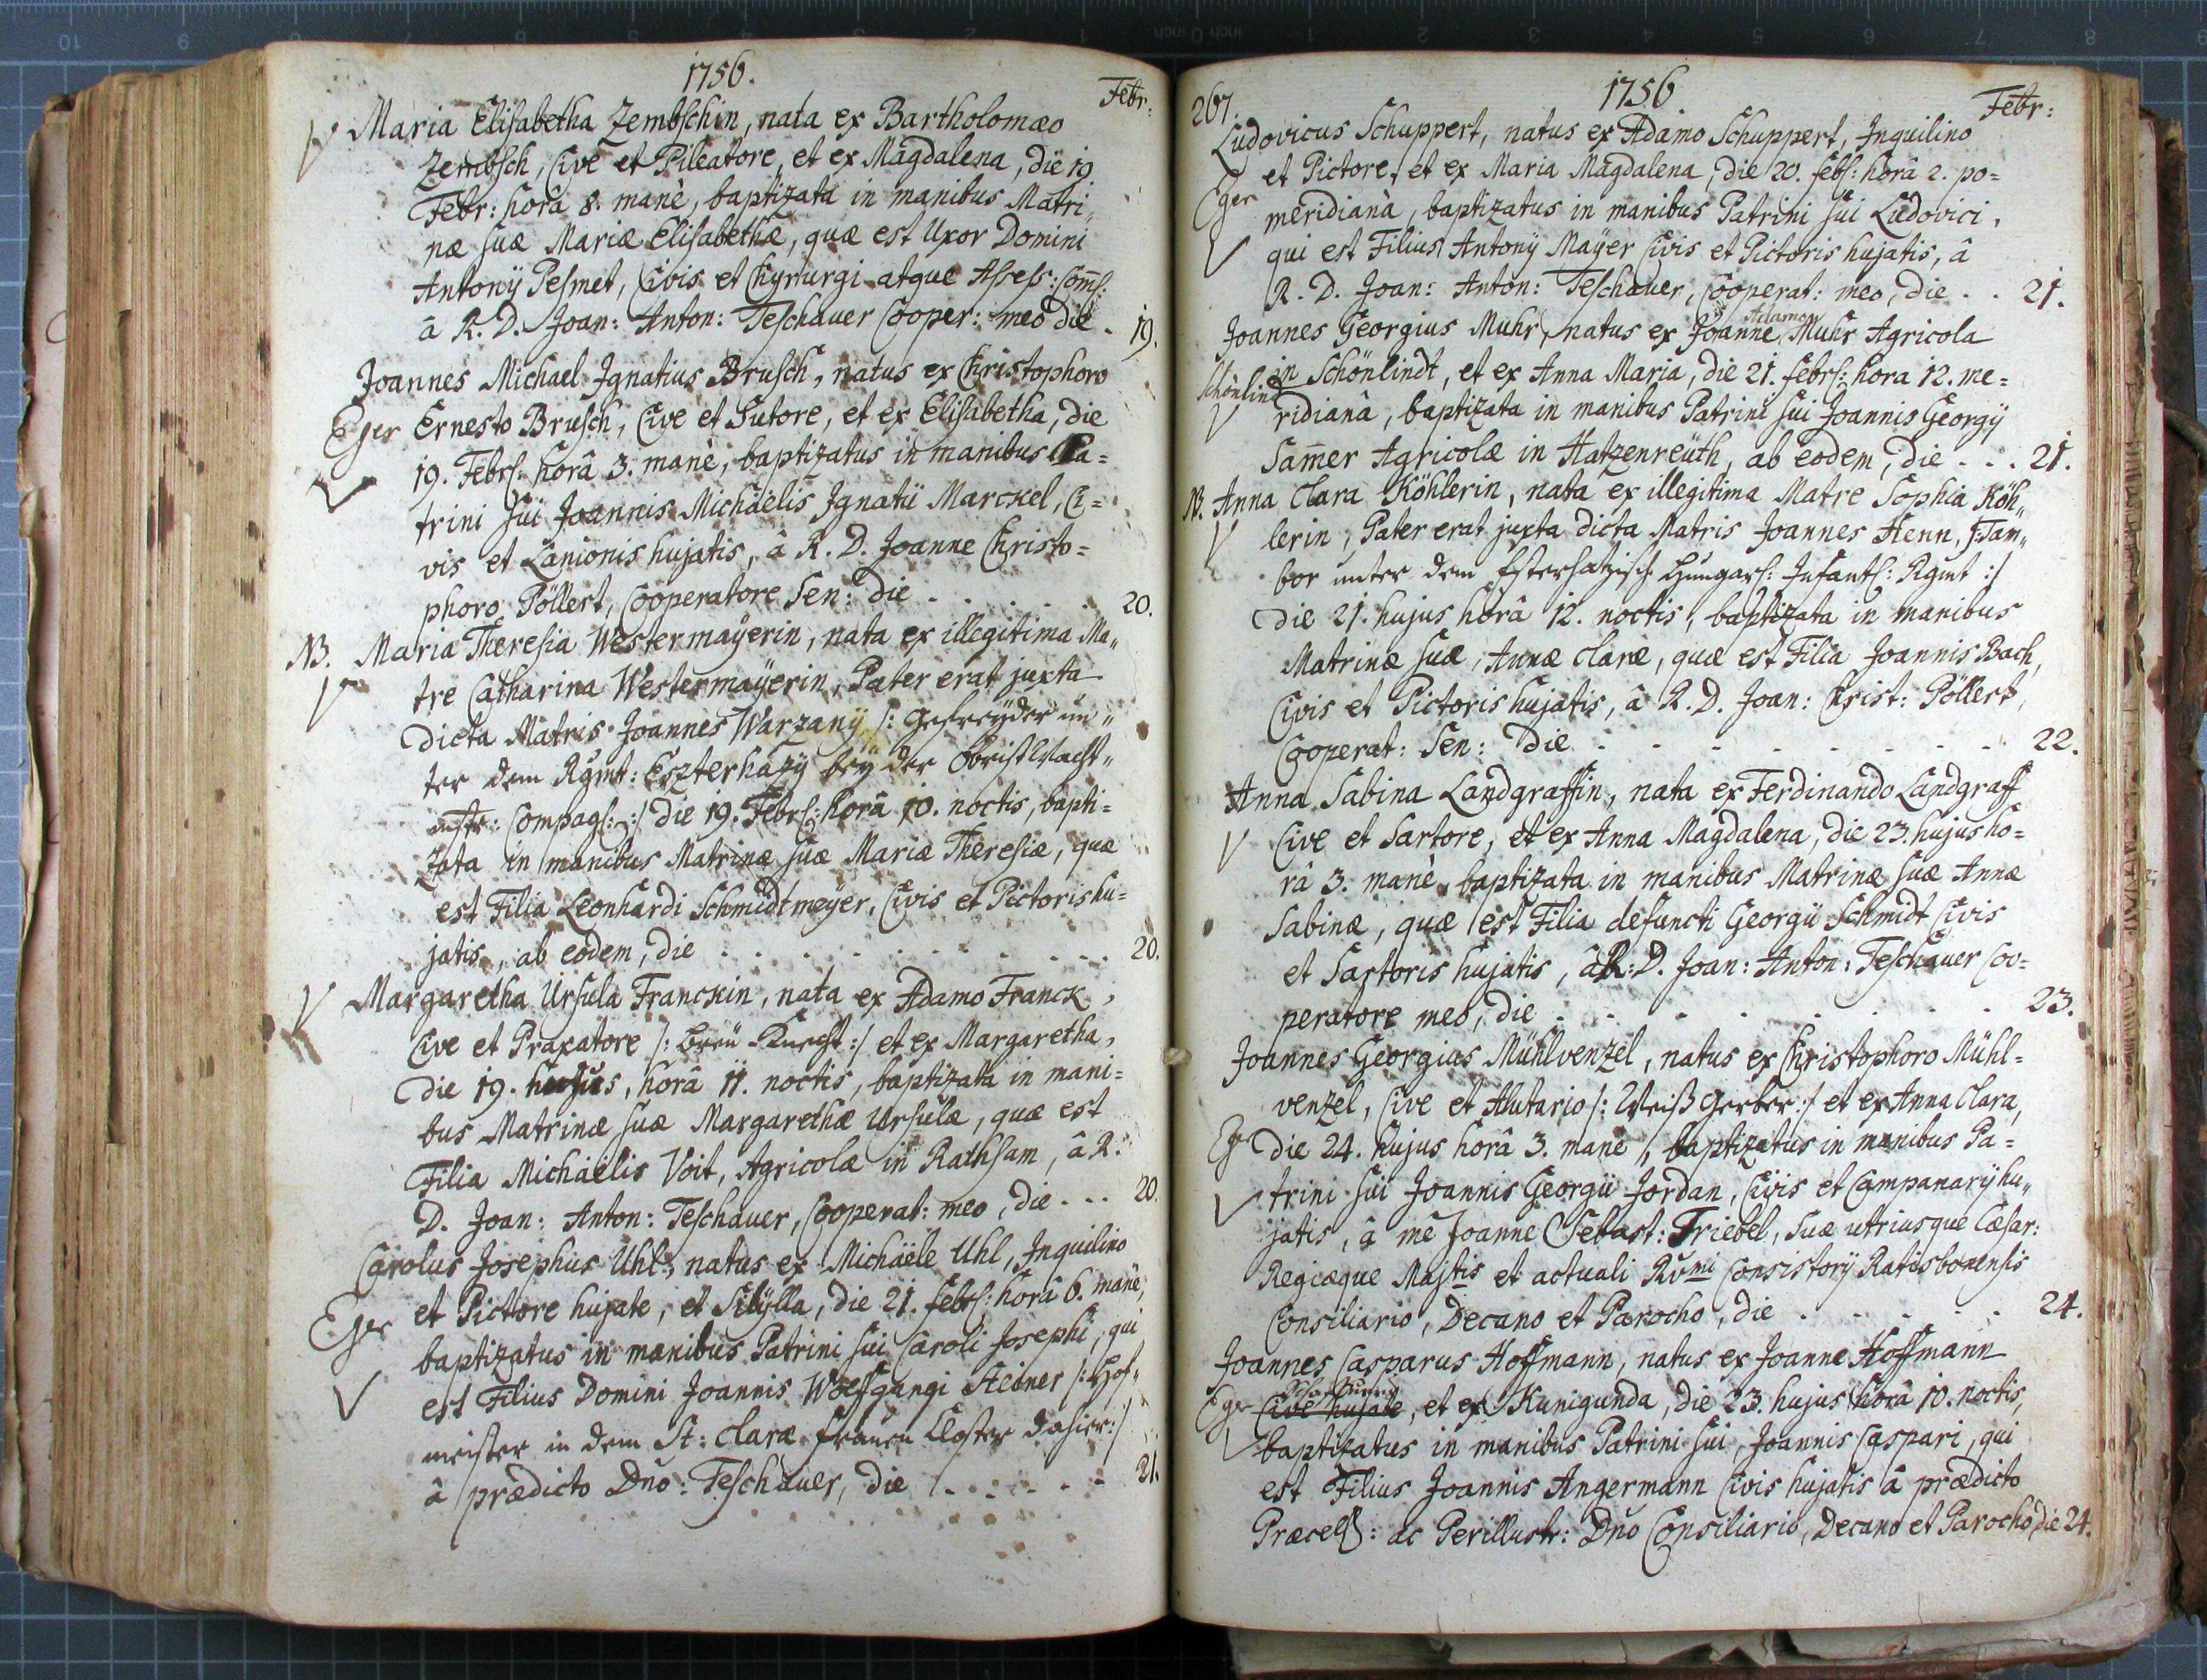 1756.
Febr:
Maria Elisabetha Zembschin, nata ex Bartholomæo
Zembsch, Cive et Pileatore, et ex Magdalena, die 19
Febr: horâ 8. manè, baptizata in manibus Matri„
næ suæ Mariæ Elisabethæ, quæ est Uxor Domini
Antonÿ Pesmet, Civis et Chyrurgi atque Assess:
â R. D. Joan: Anton: Teschauer Cooper: meo die . 19.
Joannes Michael Ignatius Brusch, natus ex Christophoro
Eger Ernesto Brusch, Cive et Sutore, et ex Elisabetha, die
19. Febr: horâ 3. manè, baptizatus in manibus Pa=
trini sui Joannis Michäelis Ignatii Marckel, Ci=
vis et Lanionis hujatis, â R. D. Joanne Christo=
phoro Pöllert, Cooperatore Sen: die . . . . . . 20.
NB. Maria Theresia Westermaÿerin, nata ex illegitima Ma„
tre Catharina Westermaÿerin, Pater erat juxta
dicta Matris Joannes Warzanÿ /: Gefreÿder un„
ter dem Rgmt: Eszterhazÿ beÿ der ObristWacht„
mstr: Compag: :/ die 19. Febr: horâ 10. noctis, bapti=
zata in manibus Matrinæ suæ Mariæ Theresiæ, quæ
est Filia Leonhardi Schmidtmeÿer, Civis et Pictoris hu=
jatis, ab eodem, die . . . . . . . . . . 20.
Margaretha Ursula Franckin, nata ex Adamo Franck,
Cive et Praxatore /: Breü Knecht :/ et ex Margaretha,
die 19. hujus, horâ 11. noctis, baptizata in mani=
bus Matrinæ suæ Margarethæ Ursulæ, quæ est
Filia Michäelis Voit, Agricolæ in Rathsam, â R.
D. Joan: Anton: Teschauer, Cooperat: meo, die . . . 20.
Carolus Josephus Uhl, natus ex Michäele Uhl, Inquilino
Eger et Pictore hujate, et Sibÿlla, die 21. febr: horâ 6. manè,
baptizatus in manibus Patrini sui Caroli Josephi, qui
est Filius Domini Joannis Wolfgangi Steiner /: Hof„
meister in dem St: Claræ frauen Closter dahier :/
â prædicto Dno: Teschauer, die . . . . . . 21.
267.
1756
Febr:
Ludovicus Schuppert, natus ex Adamo Schuppert, Inquilino
et Pictore, et ex Maria Magdalena, die 20. feb: horâ 2. po=
Eger meridianâ, baptizatus in manibus Patrini sui Ludovici,
qui est Filius Antonÿ Maÿer Civis et Pictoris hujatis, â
R. D. Joan: Anton: Teschauer, Cooperat: meo, die . . 21.
Adamo
Joannes Georgius Muhr, natus ex Joanne Muhr Agricola
Schönlind in Schönlindt, et ex Anna Maria, die 21. febr: hora 12. me=
ridianâ, baptizata in manibus Patrini sui Joannis Georgÿ
Sam̄er Agricolæ in Hatzenreüth, ab eodem, die . . . 21.
NB. Anna Clara Köhlerin, nata ex illegitima Matre Sophia Köh„
lerin, Pater erat juxta dicta Matris Joannes Henn, /: Tam„
bor unter dem Hungar: Infant: Rgmt :/
die 21. hujus horâ 12. noctis, baptizata in manibus
Matrinæ suæ, Annæ Claræ, quæ est Filia Joannis Bach,
Civis et Pictoris hujatis, â R. D. Joan: Christ: Pöllert,
Cooperat: Sen: die . . . . . . . . 22.
Anna Sabina Landgraffin, nata ex Ferdinando Landgraff
Cive et Sartore, et ex Anna Magdalena, die 23. hujus ho=
râ 3. manè, baptizata in manibus Matrinæ suæ Annæ
Sabinæ, quæ est Filia defuncti Georgii Schmidt Civis
et Sartoris hujatis, â R: D. Joan: Anton: Teschauer Coo=
peratore meo, die . . . . . . . . 23.
Joannes Georgius Mühlvenzel, natus ex Christophoro Mühl=
venzel, Cive et Alutario /: Weiß Gerber :/ et ex Anna Clara,
Eg die 24. hujus horâ 3. mane, baptizatus in manibus Pa=
trini sui Joannis Georgii Jordan, Civis et Campanarÿ hu„
jatis, â me Joanne Sebast: Triebel, Suæ utriusque Cæsar:
Regiæque Majtis et actuali Rvmi Consistorÿ Ratisbonensis
Consiliario, Decano et Parocho, die . . . . . . 24.
Joannes Casparus Hoffmann, natus ex Joanne Hoffmann
Eger Cive hujate, et ex Kunigunda, die 23. hujus horâ 10. noctis,
baptizatus in manibus Patrini sui, Joannis Caspari, qui
est Filius Joannis Angermann Civis hujatis â prædicto
Præcell: ac Perillustr: Dno Consiliario, Decano et Parocho die 24.